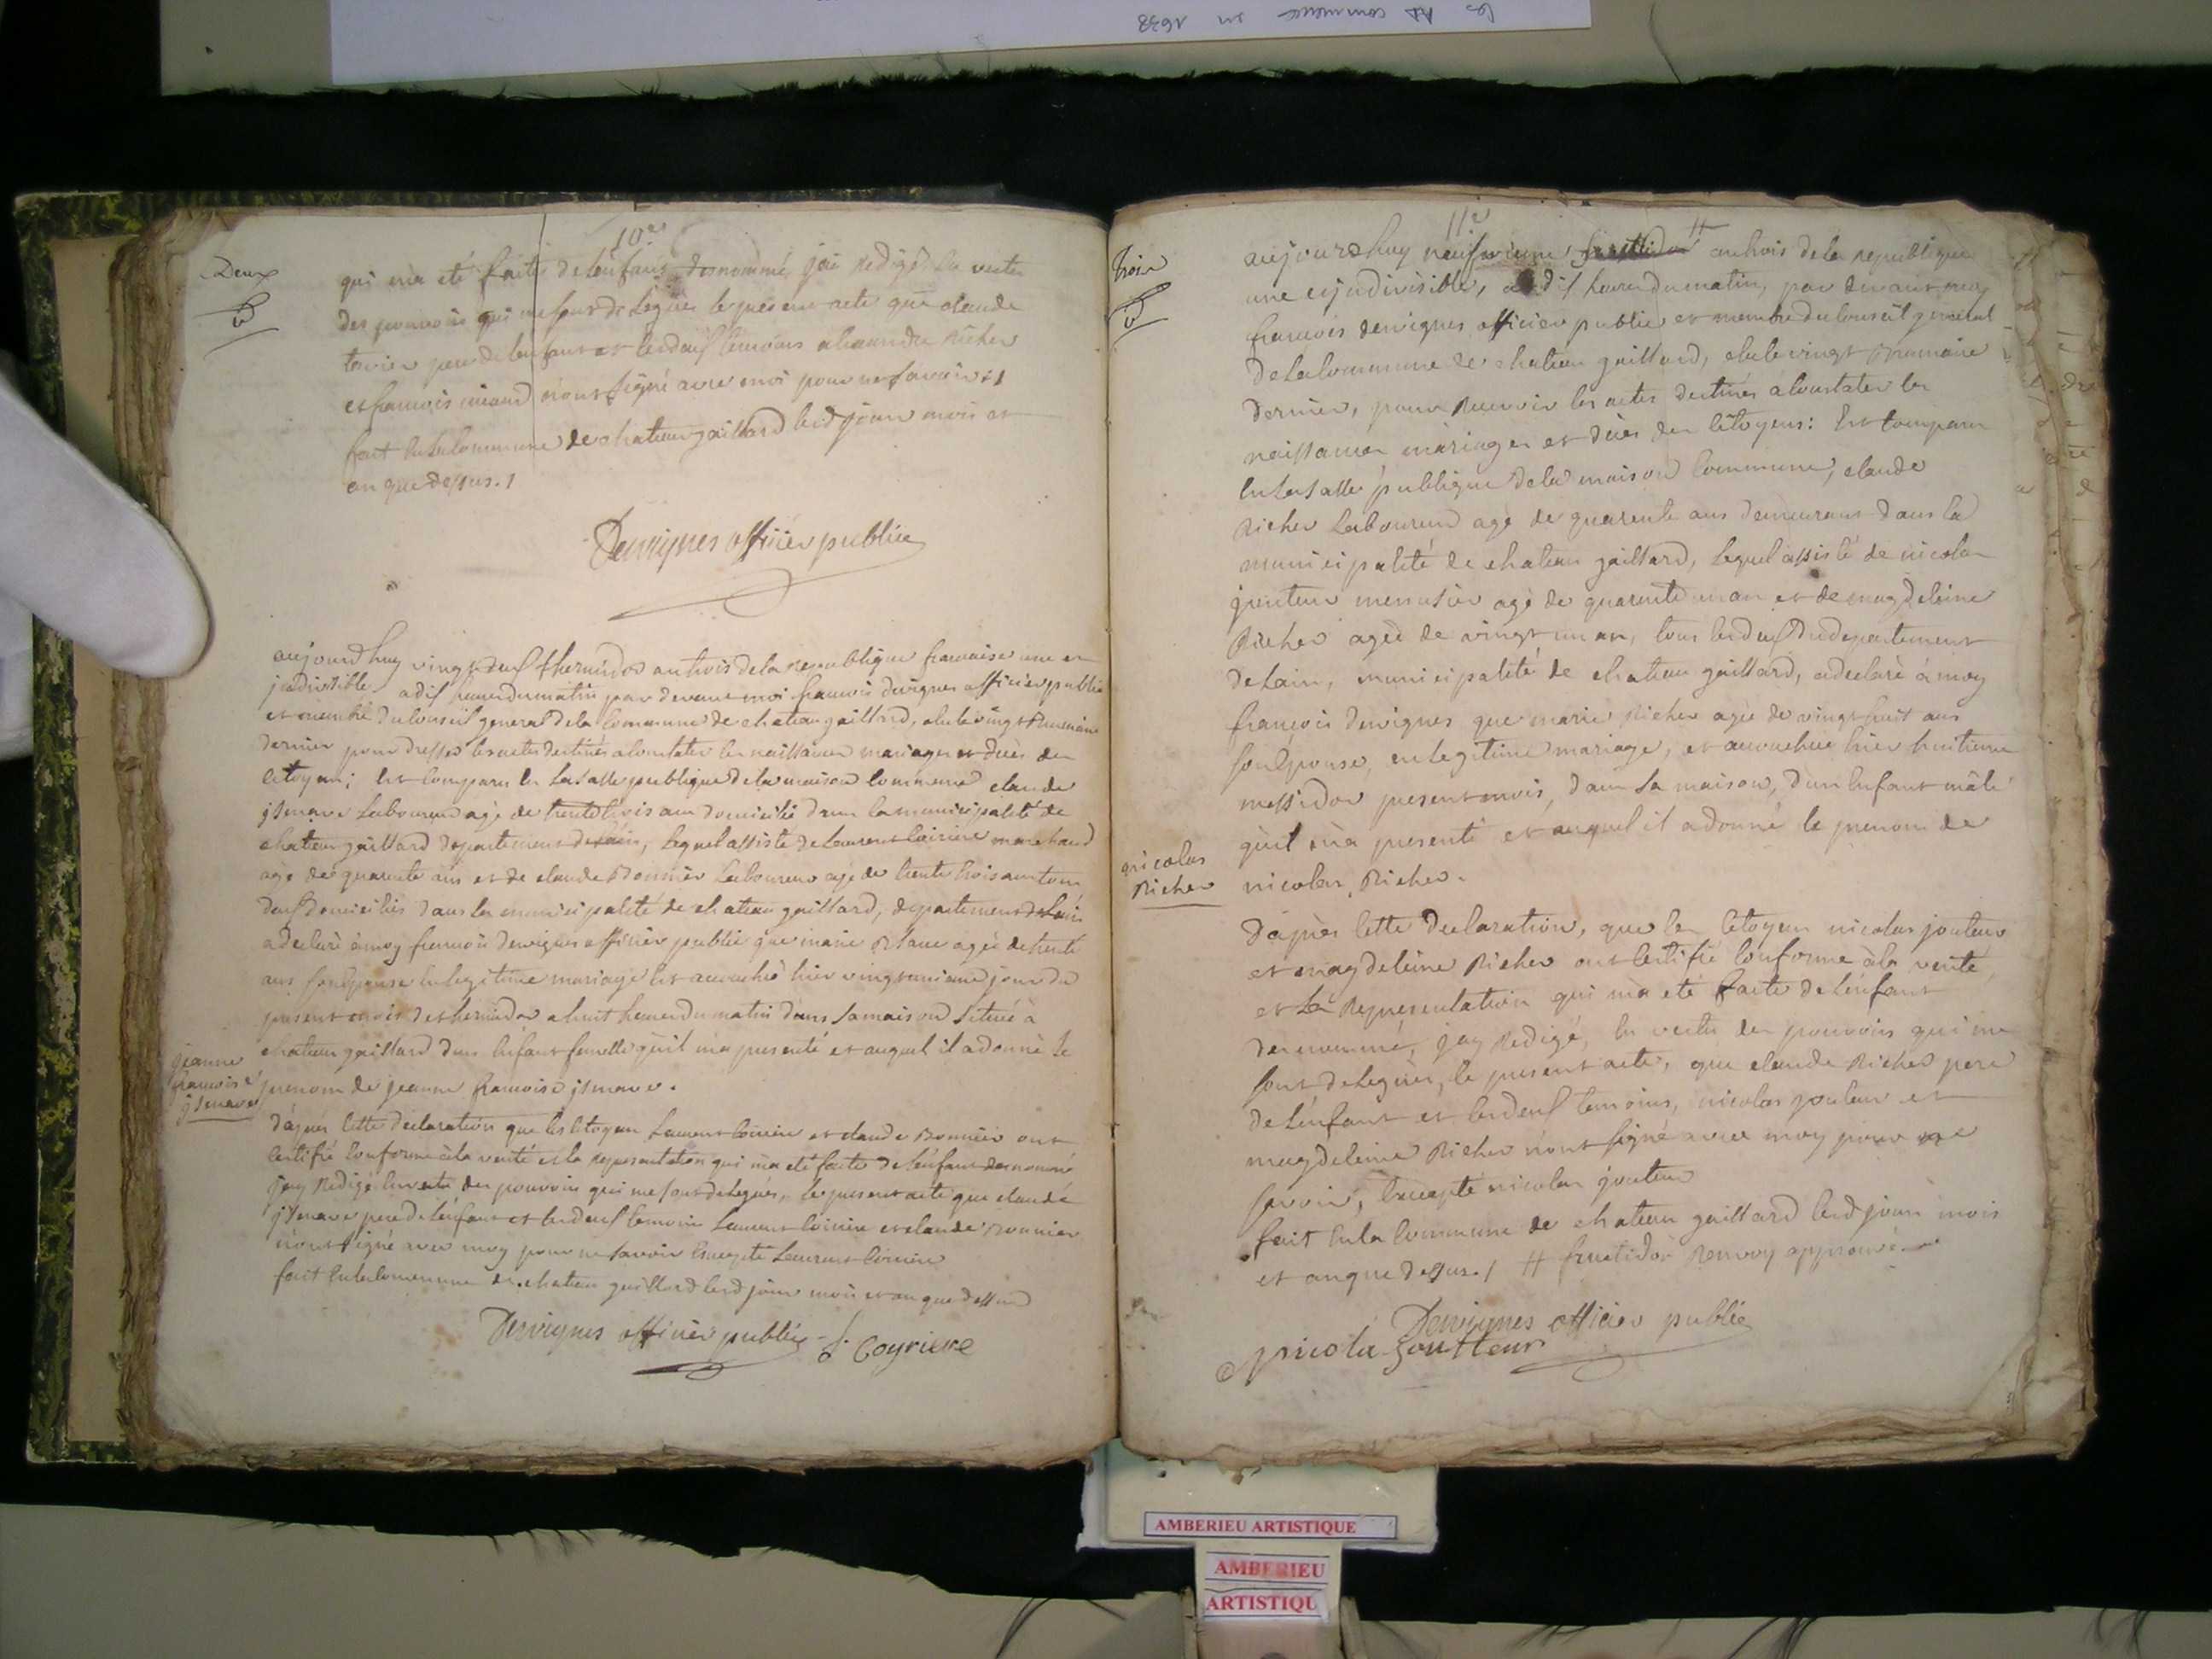 les AD commence en 1638
10e
Deux
qui m'a eté faite de l'enfans denommé, jai redigé en vertu
des pouvoirs qui me sont delegues le present acte que claude
pere de lenfant et lesdeux temoins alexandre Richer
et francois n'ont signé avec moi pour ne savoir ./
fait en la commune de chateau gaillard lesd jour mois et
an que dessus ./
Dervignes officier public
aujourdhuy vingt deux thermidor an trois de la republique francaise une et
indivisible a dix heures du matin par devant moi francois dervignes officier public
et membre du conseil general de la commune de chateau gaillard, elu le vingt brumaire
dernier pour dresser les actes destinés a constater les naissances mariages et décès des
citoyens; est comparu en la salle publique de la maison commune claude
jsmave laboureur agé de trente trois ans domicilié dans la municipalité de
chateau gaillard departement de lain, lequel assisté de laurent coiriere marchand
agé de quarente ans et de claude Bonnier laboureur agé de trente trois ans tous
deux domiciliés dans la municipalité de chateau gaillard, departement de lain
a declaré a moy francois dervignes officier public que marie Blanc agée de trente
ans son epouse en legitime mariage est accouché hier vingt unieme jour du
present mois de thermidor a huit heures du matin dans sa maison située à
chateau gaillard dun enfant femelle qu'il ma presenté et auquel il a donné le
prenom de jeanne francoise jsmave .
jeanne
francoise
jsmave
d'apres cette declaration que les citoyens Laurent Coiriere et claude Bonnier ont
certifié conforme à la verité et la representation qui m'a eté faite de lenfant denommé
jay redigé en vertu des pouvoirs qui me sont delegués, le present acte que claude
jsmave pere de l'enfant et les deux temoins Laurent Coiriere et claude Bonnier
n'ont signé avec moy pour ne savoir Excepté Laurent Coiriere
fait en la commune de chateau gaillard lesd jour mois et an que dessus
Dervignes officier public L. Coyriere
11e
trois
aujourdhuy neufvieme # an trois de la republique
une et indivisible, a dix heures du matin, par devant moy
francois dervignes officier public et membre du conseil general
de la commune de chateau gaillard, elu le vingt Brumaire
dernier, pour recevoir les actes destinés a constater les
naissances mariages et décès des citoyens: Est comparu
en la salle publique de la maison commune, claude
Richer Laboureur agé de quarente ans demeurant dans la
municipalité de chateau gaillard, lequel assisté de nicolas
jouteur menusier agé de quarente un an et de magdeleine
Richer agée de vingt un an, tous les deux du departement
de Lain, municipalité de chateau gaillard, a declaré à moy
francois dervignes que marie Richer agée de vingt huit ans
son epouse, en legitime mariage, est accouchée hier huitieme
messidor present mois, dans sa maison, d'un Enfant mâle
qu'il m'a presenté et auquel il a donné le prenom de
nicolas Richer.
nicolas
Richer
D'apres cette declaration, que les citoyens nicolas jouteur
et magdeleine Richer ont certifié conforme à la verité,
et La Representation qui m'a eté faite de l'enfant
denommé, jay redigé, en vertu des pouvoirs qui me
sont delegués, le present acte, que claude Richer pere
de l'enfant et les deux temoins, nicolas jouteur et
magdeleine Richer n'ont signé avec moy pour ne
savoir, Excepté nicolas jouteur
fait en la commune de chateau gaillard lesd jour mois
et an que dessus ./ # fructidor Renvoy approuvé
Dervignes officier public
Nicola Joutteur
AMBERIEU ARTISTIQUE
AMBERIEU
ARTISTIQU